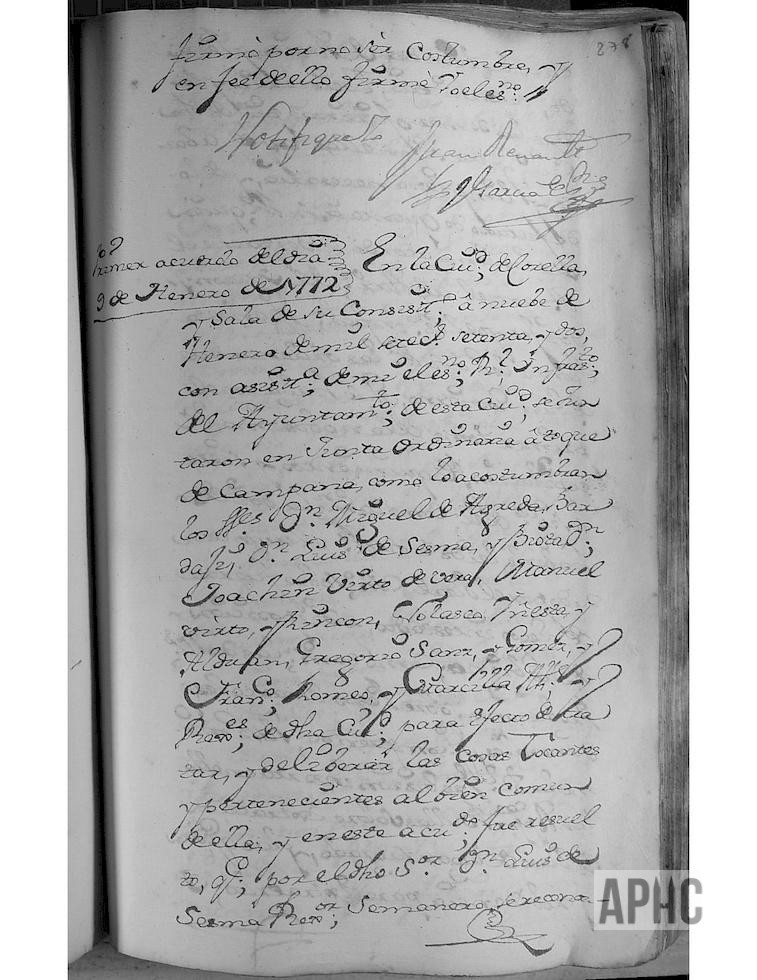 278
firmò por no sèr Costumbre, y
en feè de ello firmè Yo el es.no
Notifiquelo
Juan Renau
Garcia Es.no
Primer acuerdo del dia
9 de Henero de 1772
En la Ciu.d; de Corella,
y Sala de su Consist.o; â nuebe de
Henero de mil setec.s setenta, y dos,
con asist.a; de mi el es.no; R.l; Infras.to;
del Ayuntam.to; de esta Ciu.d; se Jun
taron en Junta Ordinaria â toque
de Campana, como lo acostumbran
los SS.es D.n Miguel de Agreda, Bar
D.n Luis de Sesma, y D.n;
Joachin Virto de Vera, Manuel
virto, y Rincon, Nolasco Yñesta, y
Alduan, Gregorio Sanz, y Gomez, y
Fran.co; Romeo, y Guarcilla
Rex.es; de dha Ciu.d; para efecto de tra
tar, y deliberar las cosas Tocantes
y pertenecientes al bien comun
de ella, y en este acu.do; fue resuel
to, q.e; por el dho S.or D.n Luis de
Sesma Rex.or; Semanero, se recono-
APHC